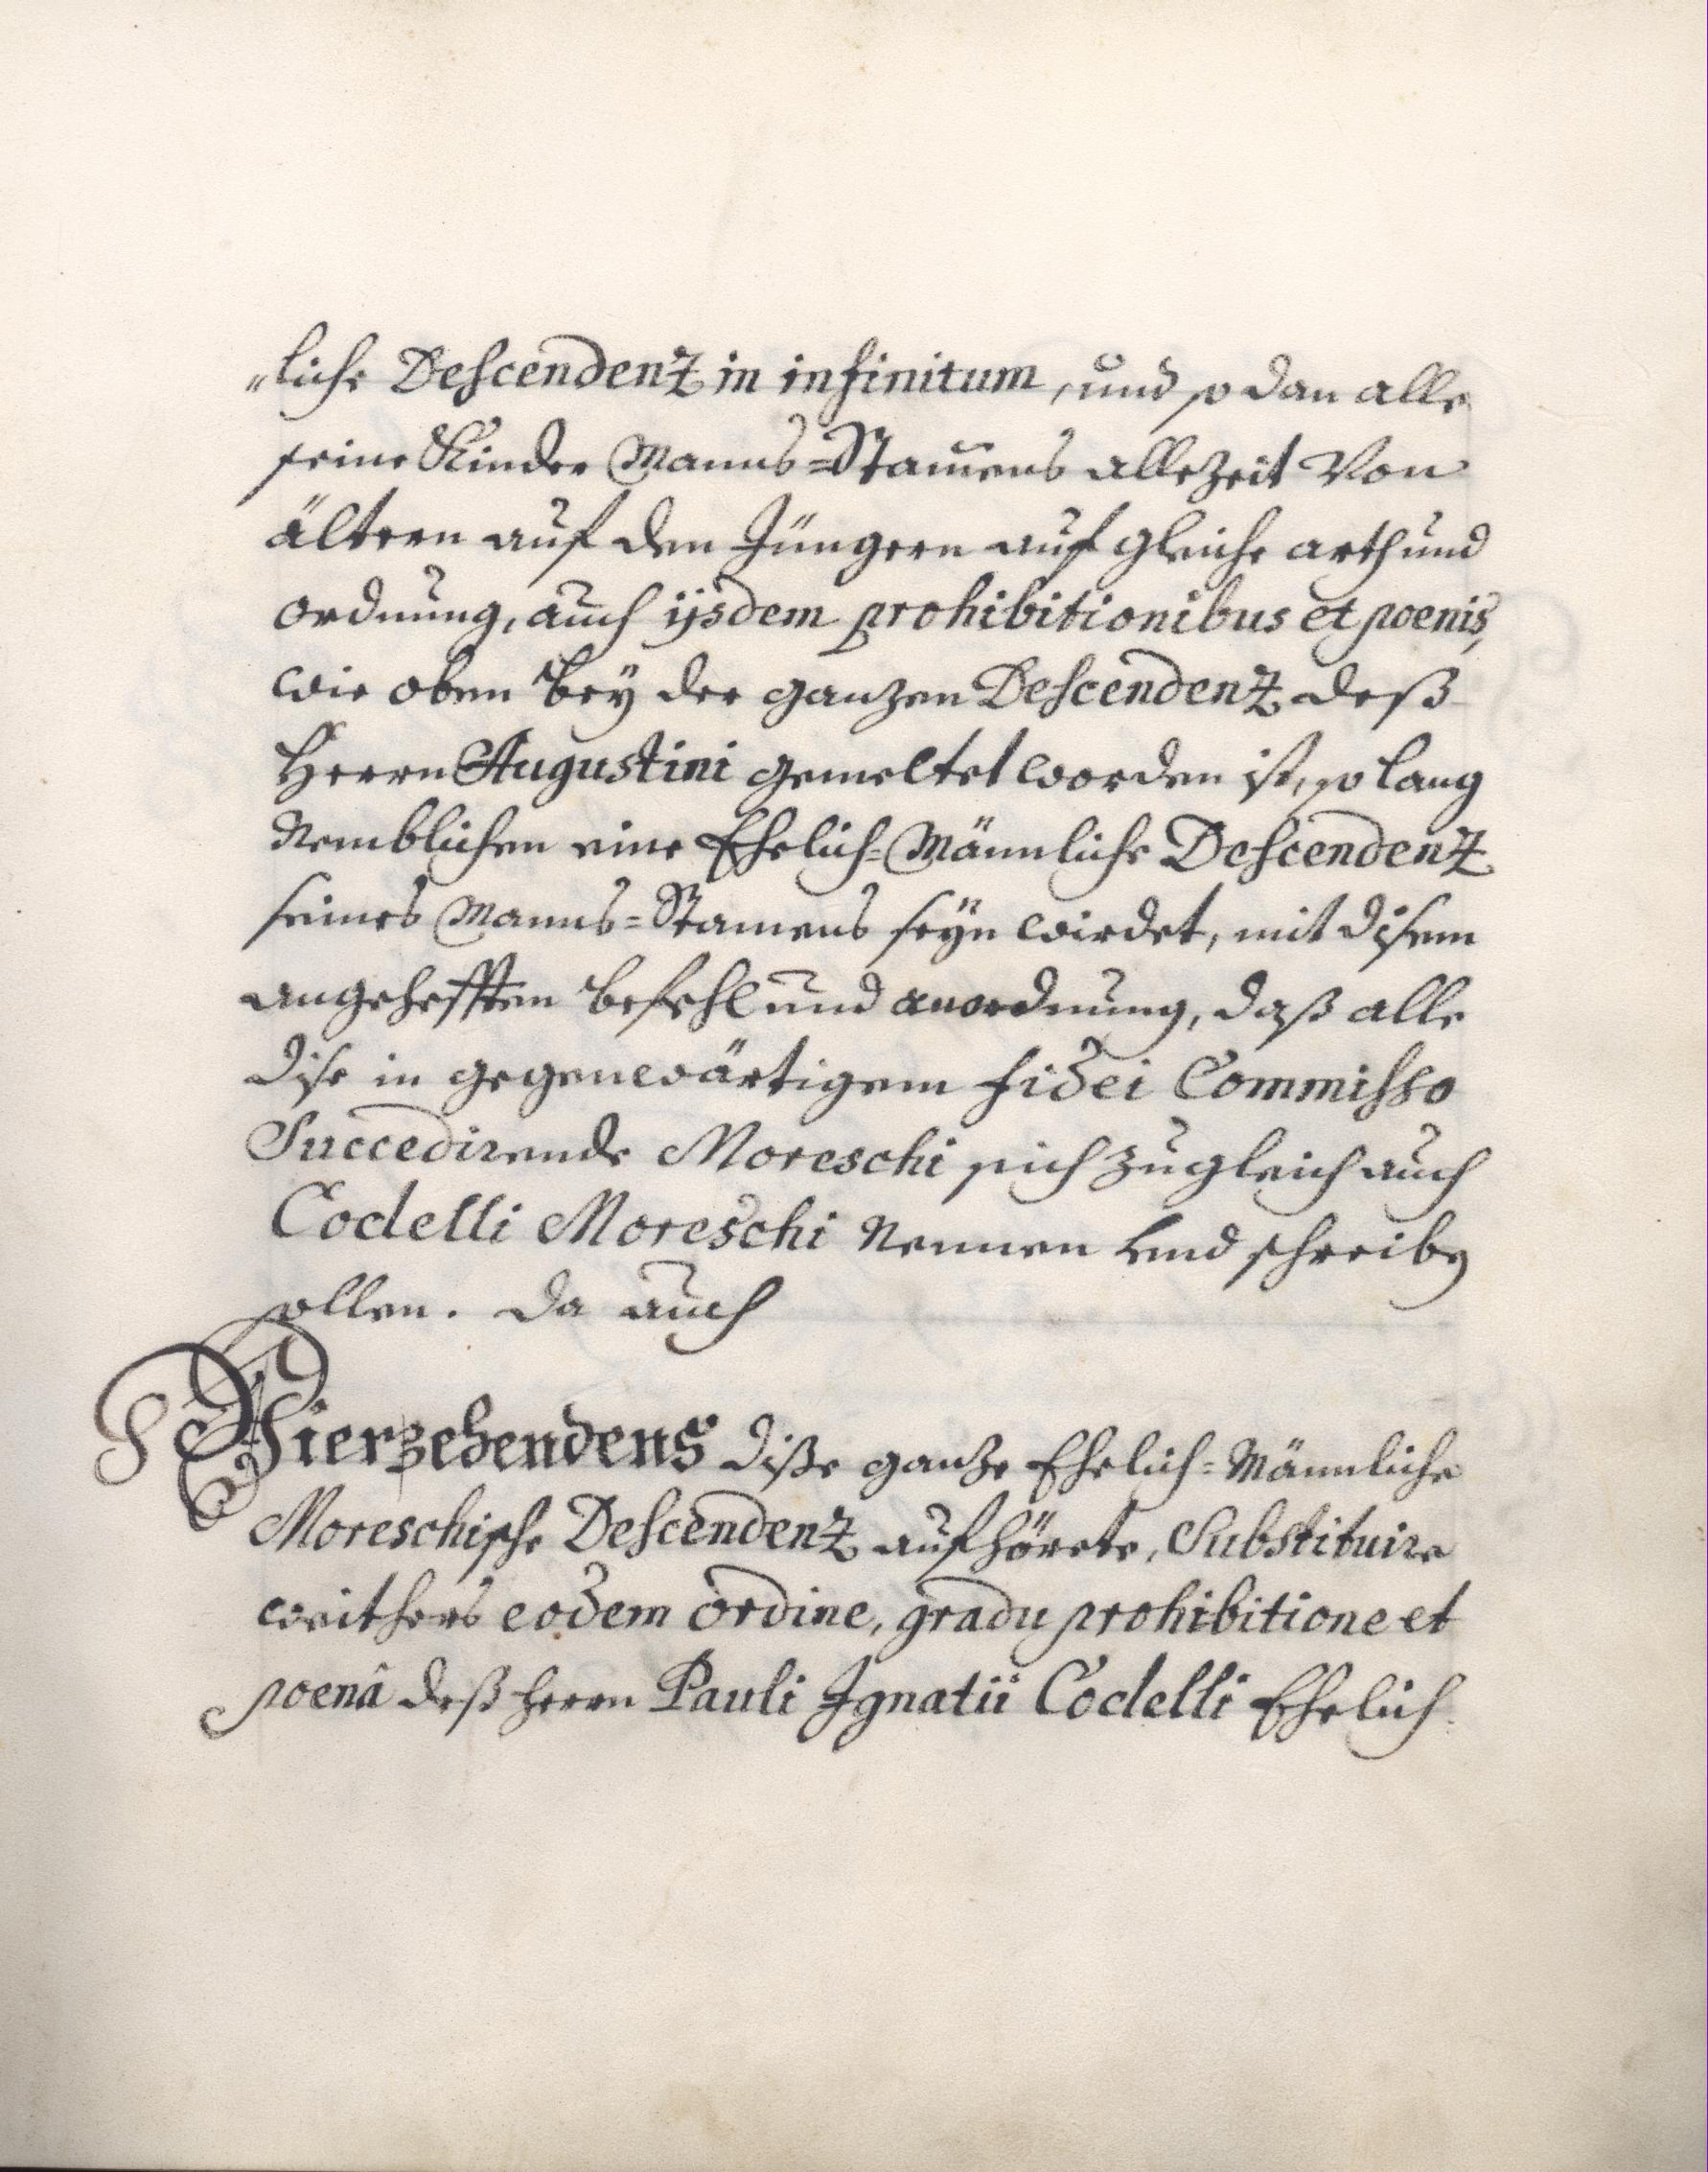 „liche Descendenz in infinitum, und so dan alle
seine Kinder Manns=Stam̄ens allezeit Von
ältern auf den Jüngern auf gleiche arth und
ordnung, auch ijsdem prohibitionibus et poenis,
wie oben bey der ganzen Descendenz deß
Herrn Augustini gemeltet worden ist, so lang
Nemblichen eine Ehelich=Männliche Descendenz
seines Manns=Stamens seÿn wirdet, mit disem
angehefften befehl und anordnung, daß alle
dise in gegenwärtigem fidei Commisso
Succedirende Moreschi sich zugleich auch
Codelli Moreschi Nennen und schreiben
sollen. da auch
Vierzehendens diße ganze Ehelich=Männliche
Moreschische Descendenz aufhörete, Substituire
weithers eodem ordine, gradu prohibitione et
poenâ deß herrn Pauli Ignatii Codelli Ehelich=